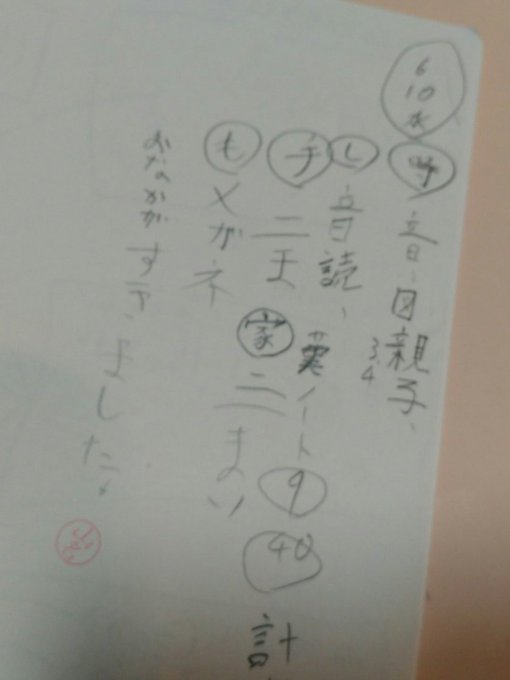 6
10
水
音、日親子、
3、4
し 音読、漢ノート 9 40 計
手 二ま
家 二まい
も メがネ
おなかがすきました。